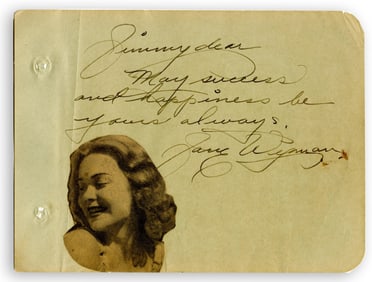 Jimmy dear
May success
and happiness be
yours always.
Jane Wyman